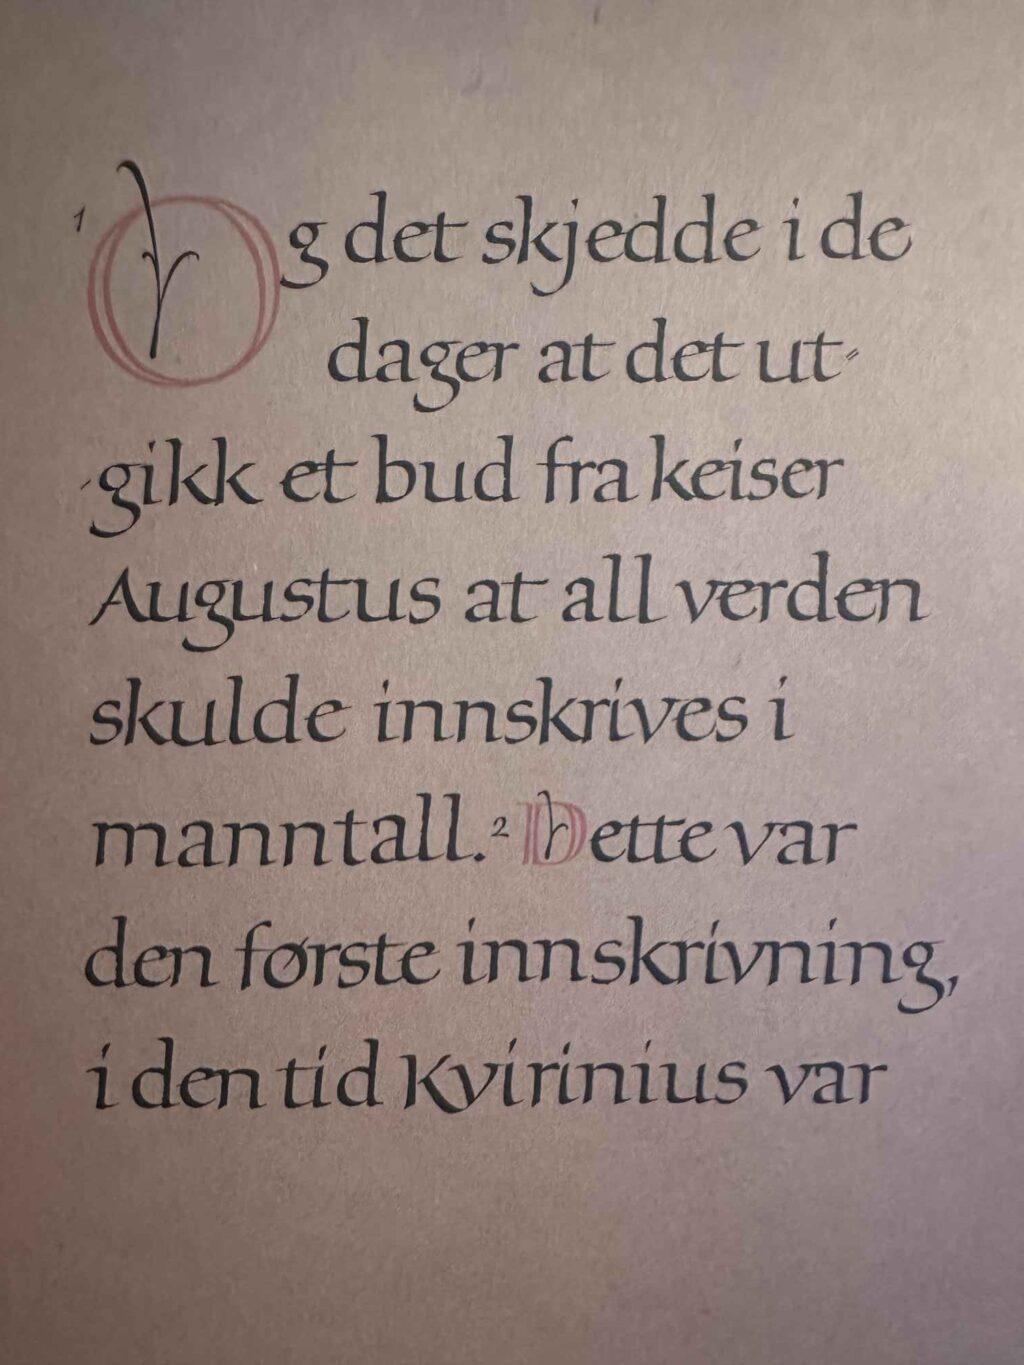 1 Og det skjedde i de
dager at det ut-
-gikk et bud fra keiser
Augustus at all verden
skulde innskrives i
manntall. 2 Dette var
den første innskrivning,
i den tid Kvirinius var